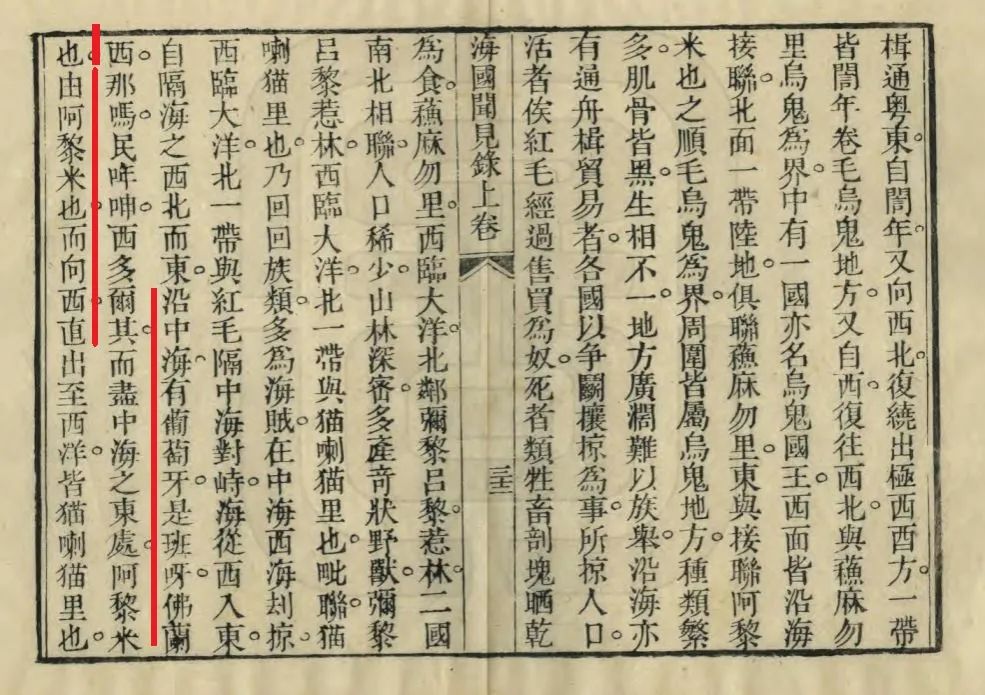 楫通粤東。自閻年又向西北。復繞出極西酉方。一帶
皆閻年卷毛烏鬼地方。又自西復往西北。與蘸麻勿
里烏鬼為界。中有一國亦名烏鬼國。王西面皆沿海
接聯。北面一帶陸地。俱聯蘸麻勿里。東與接聯阿黎
米也之順毛烏鬼為界。周圍皆屬烏鬼地方。種類繁
多。肌骨皆黑。生相不一。地方廣濶難以族舉。沿海亦
有通舟楫貿易者。各國以爭鬭攘掠為事。所掠人口。
活者俟紅毛經過售買為奴。死者類牲畜剖塊晒乾
海國聞見錄上卷 三十三
為食。蘸麻勿里。西臨大洋。北鄰彌黎呂黎惹林二國
南北相聯。人口稀少。山林深密。多產奇狀野獸。彌黎
呂黎惹林。西臨大洋。北一帶與猫喇猫里也。毗聯猫
喇猫里也。乃回回族類。多為海賊。在中海西海刦掠。
西臨大洋。北一帶與紅毛隔中海對峙。海從西入東。
自隔海之西北而東。沿中海。有葡萄牙。是班呀。佛蘭
西。那嗎。民哖呻。西多爾其。而盡中海之東處。阿黎米
也。由阿黎米也。而向西。直出至西洋。皆猫喇猫里也。